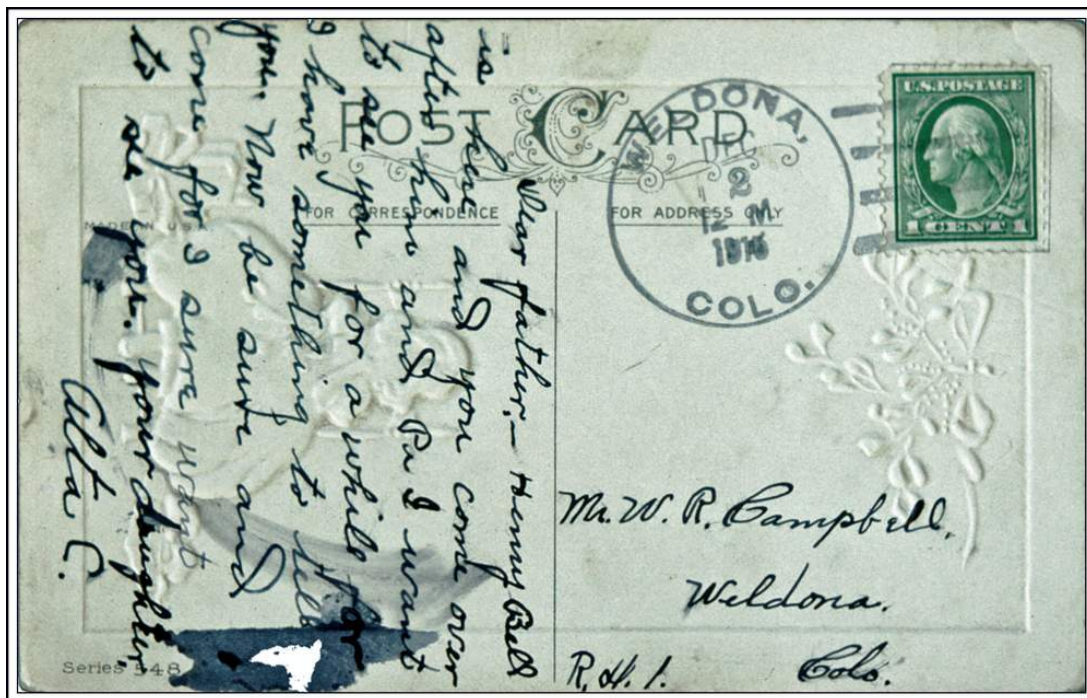 POST CARD
FOR CORRESPONDENCE
FOR ADDRESS ONLY
MADE IN U.S.A.
WELDONA,
2
12 M
COLO.
U.S. POSTAGE
1 CENT 1
Dear father:— Henry Bell
is here and you come over
after him and Pa I want
to see you for a while for
I have something to tell
you. Now be sure and
come for I sure want
to see you. your daughter,
Alta C.
Mr. W. R. Campbell,
Weldona.
Colo.
R. H. 1.
Series 548